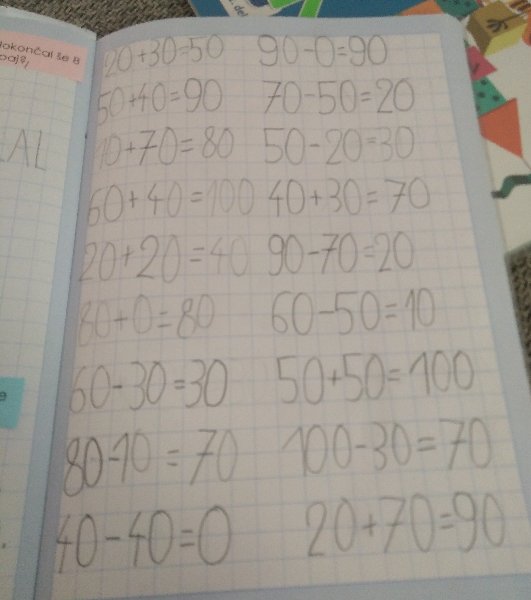 dokončal še 8
EAL
20+30=50 90-0=90
50+40=90 70-50=20
10+70=80 50-20=30
60+40=100 40+30=70
20+20=40 90-70=20
80+0=80 60-50=10
60-30=30 50+50=100
80-10=70 100-30=70
40-40=0 20+70=90